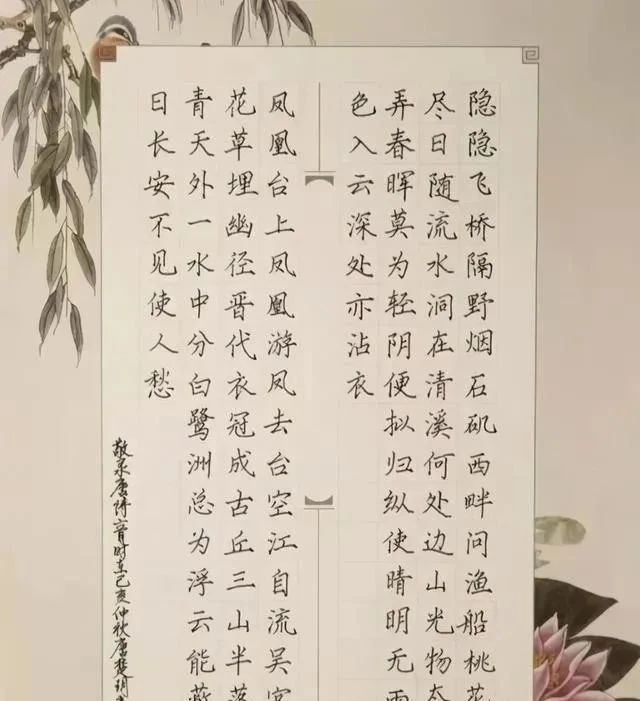 隐隐飞桥隔野烟石矶西畔问渔船桃花
尽日随流水洞在清溪何处边山光物态
弄春晖莫为轻阴便拟归纵使晴明无雨
色入云深处亦沾衣
凤凰台上凤凰游凤去台空江自流吴宫
花草埋幽径晋代衣冠成古丘三山半落
青天外一水中分白鹭洲总为浮云能蔽
日长安不见使人愁
敬录唐诗三首时在己亥仲秋唐楚玥